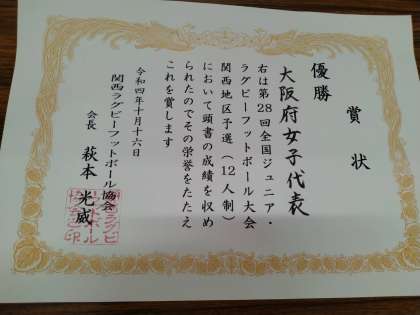 賞状
優勝
大阪府女子代表
右は第28回全国ジュニア・
ラグビーフットボール大会
関西地区予選(12人制)
において頭書の成績を収め
られたのでその栄誉をたたえ
これを賞します
令和四年十月十六日
関西ラグビーフットボール協会
会長 萩本光威